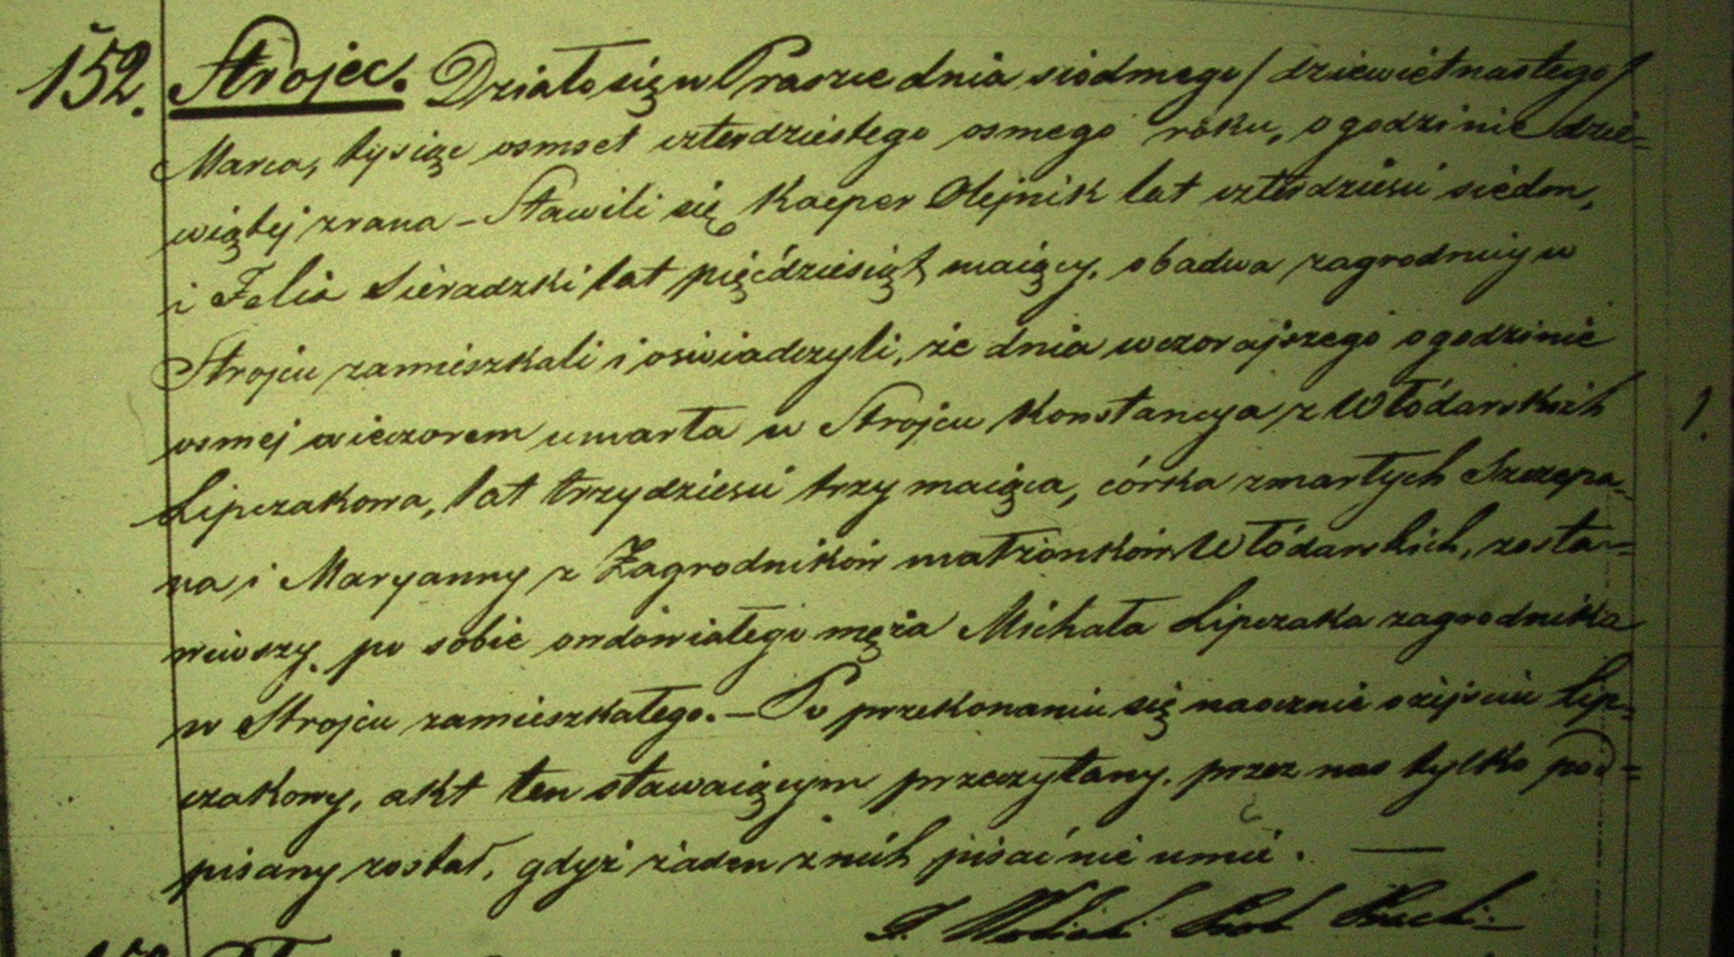 152. Strojec. Działo się w Praszce dnia siódmego / dziewiętnastego /
Marca, tysiąc osmset czterdziestego osmego roku, o godzinie dzie-
wiątej zrana – Stawili się Kacper Olejnik lat czterdzieści siedm,
i Felix Sieradzki lat pięćdziesiąt maiący, obadwa zagrodnicy w
Strojcu zamieszkali i oświadczyli, że dnia wczorajszego o godzinie
osmej wieczorem umarła w Strojcu Konstancya z Włódarskich
Lipczakowa, lat trzydzieści trzy maiąca, córka zmarłych Szczepa-
na i Maryanny z Zagrodników małżonków Włódarskich, zosta-
wiwszy po sobie owdowiałego męża Michała Lipczaka zagrodnika
w Strojcu zamieszkałego. – Po przekonaniu się naocznie o zejściu Lip-
czakowy, akt ten stawaiącym przeczytany, przez nas tylko pod-
pisany został, gdyż żaden z nich pisać nie umie. —
1.